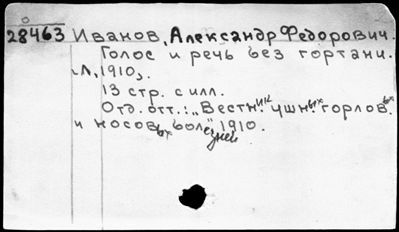 28463 Иванов, Александр Федорович.
Голос и речь без гортани.
Л, 1910,.
13 стр. с илл.
Отд. отт.: „Вестник ушных горловых
и носовых болезней" 1910.